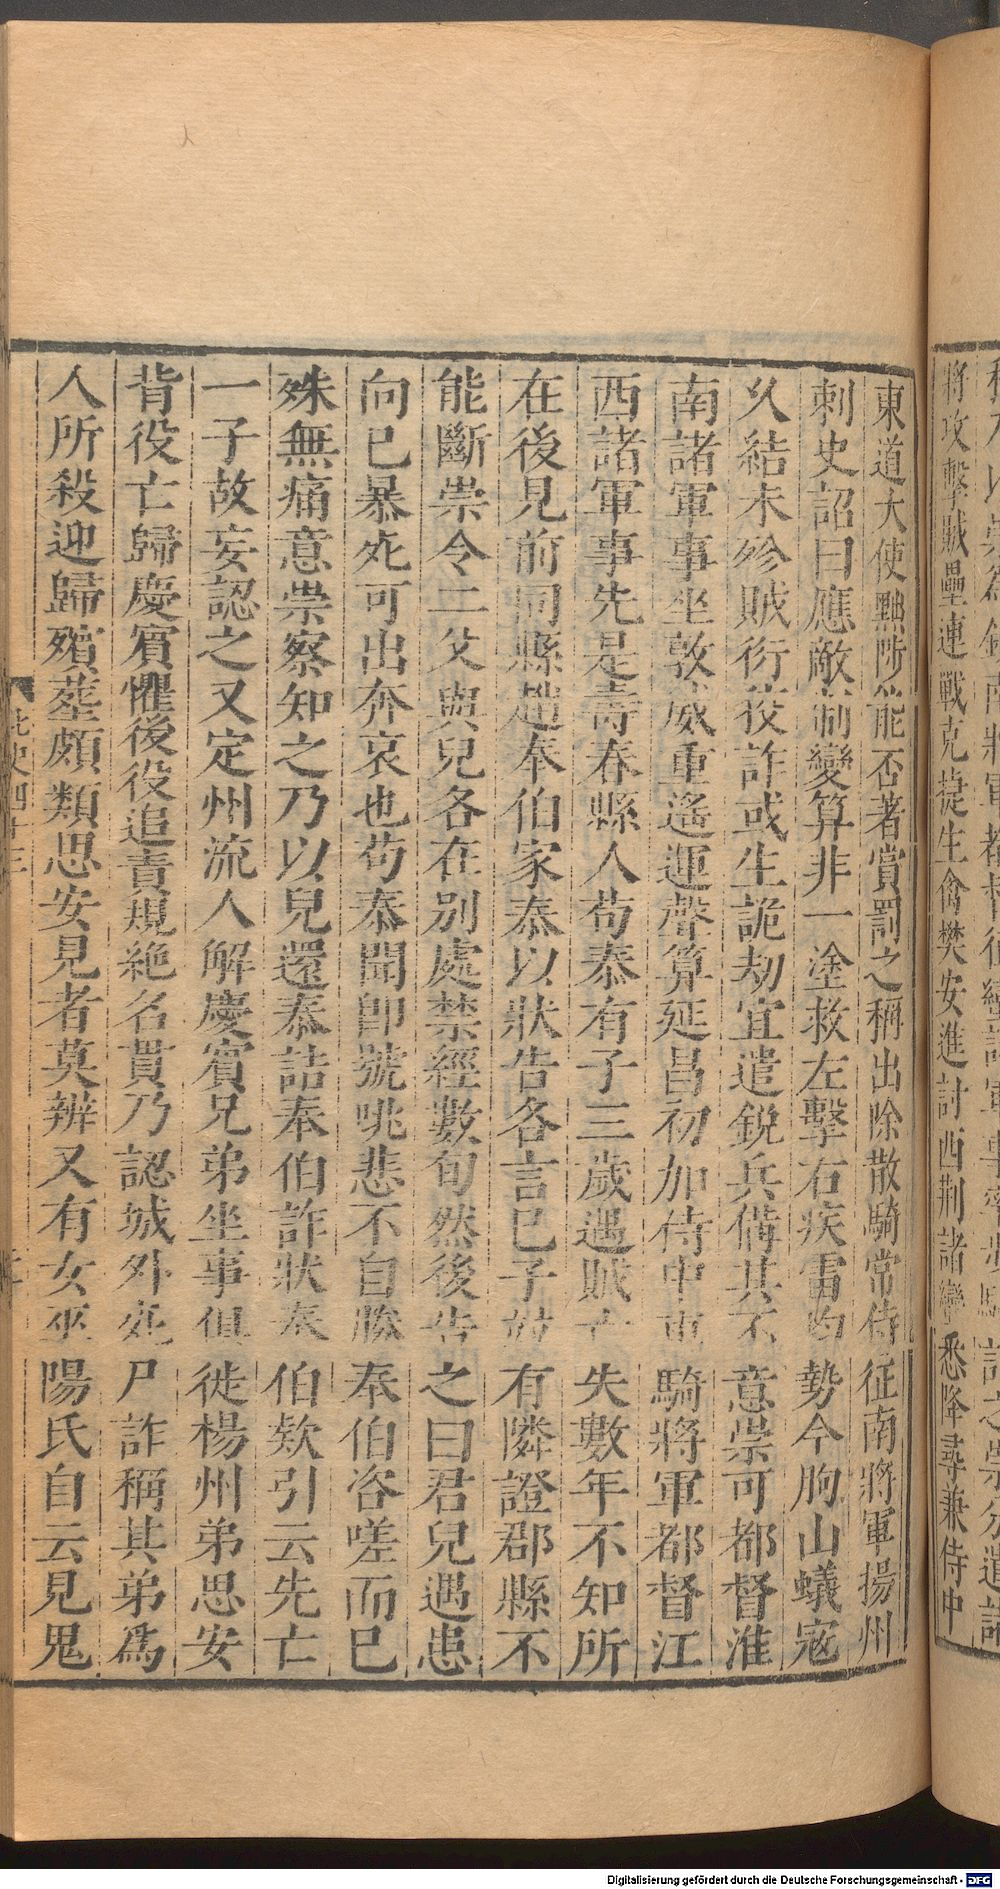 將攻擊賊壘連戰克捷生禽樊安進討西荊諸蠻悉降尋兼侍中
東道大使黜陟能否著賞罰之稱出除散騎常侍征南將軍揚州
刺史詔曰應敵制變算非一塗救左擊右疾雷均勢今朐山蟻寇
久結未殄賊衍狡詐或生詭劫宜遣銳兵備其不意崇可都督淮
南諸軍事坐敦威重遙運聲算延昌初加侍中車騎將軍都督江
西諸軍事先是壽春縣人苟泰有子三歲遇賊亡失數年不知所
在後見前同縣趙奉伯家泰以狀告各言己子並有隣證郡縣不
能斷崇令二父與兒各在別處禁經數旬然後告之曰君兒遇患
向已暴死可出奔哀也苟泰聞即號咷悲不自勝奉伯咨嗟而已
殊無痛意崇察知之乃以兒還泰詰奉伯詐狀奉伯欸引云先亡
一子故妄認之又定州流人解慶賓兄弟坐事俱徙楊州弟思安
背役亡歸慶賓懼後役追責規絶名貫乃認城外死尸詐稱其弟爲
人所殺迎歸殯葬頗類思安見者莫辨又有女巫陽氏自云見鬼
北史四十三
Digitalisierung gefördert durch die Deutsche Forschungsgemeinschaft - DFG